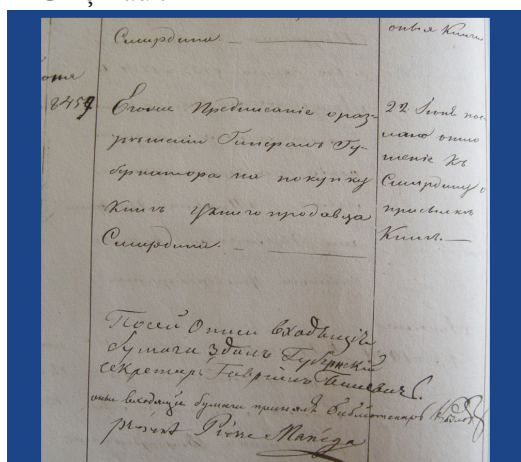 Смирдина. —
оныя Книги
8459
Егоже Предписаніе о раз-
рѣшеніи Генералъ Гу-
бернатора на покупку
Книгъ у книгопродавца
Смирдина. —
22 Іюня пос-
лано отно
шеніе къ
Смирдину о
присылкѣ
Книгъ. —
По сей Описи входящія
бумаги здалъ Губернскій
секретарь Гавріилъ
оные входящіе бумаги принялъ библиотекарь